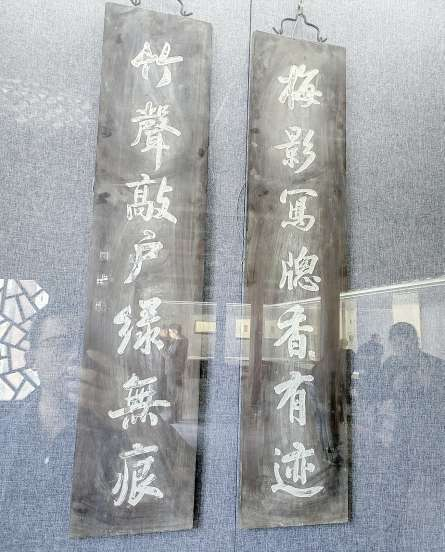 梅影寫牎香有迹
竹聲敲戶綠無痕